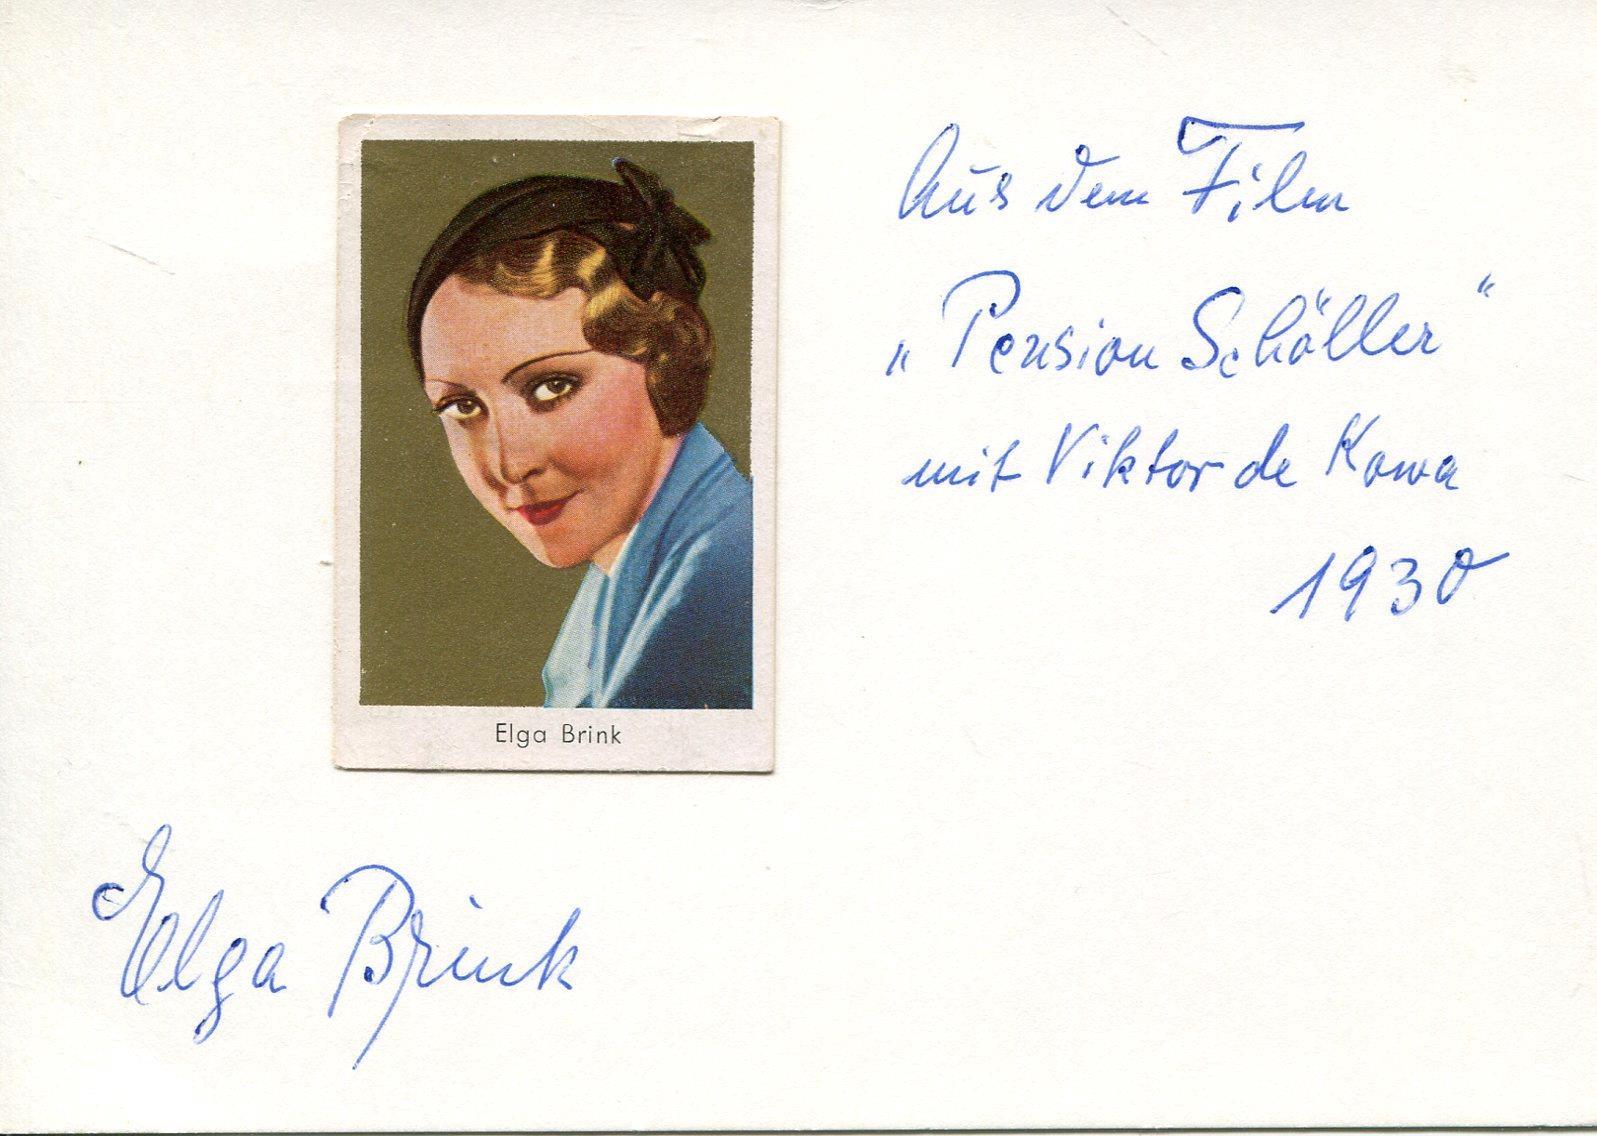 Aus dem Film
„Pension Schöller“
mit Viktor de Kowa
1930
Elga Brink
Elga Brink